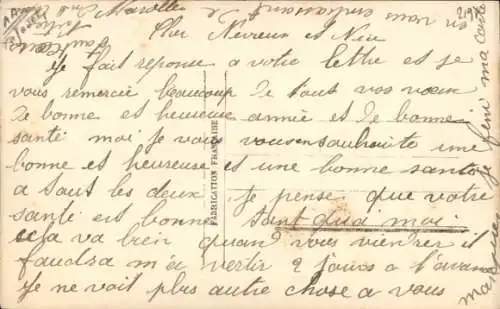 en vous embrassant
Cher Neveux et Niu
Je fait reponse a votre lettre et je
vous remercie beaucoup de tout vos vœux
de bonne et heureuse année et de bonne
santé moi je vous vous en souhaite une
bonne et heureuse et une bonne santé
a tout les deux je pense que votre
santé est bonne tant qua moi
cela va bien quand vous viendrer il
faudra m'avertir 2 jours a l'avance
Je ne voit plus autre chose a vous
marquer je fini ma carte
FABRICATION FRANÇAISE